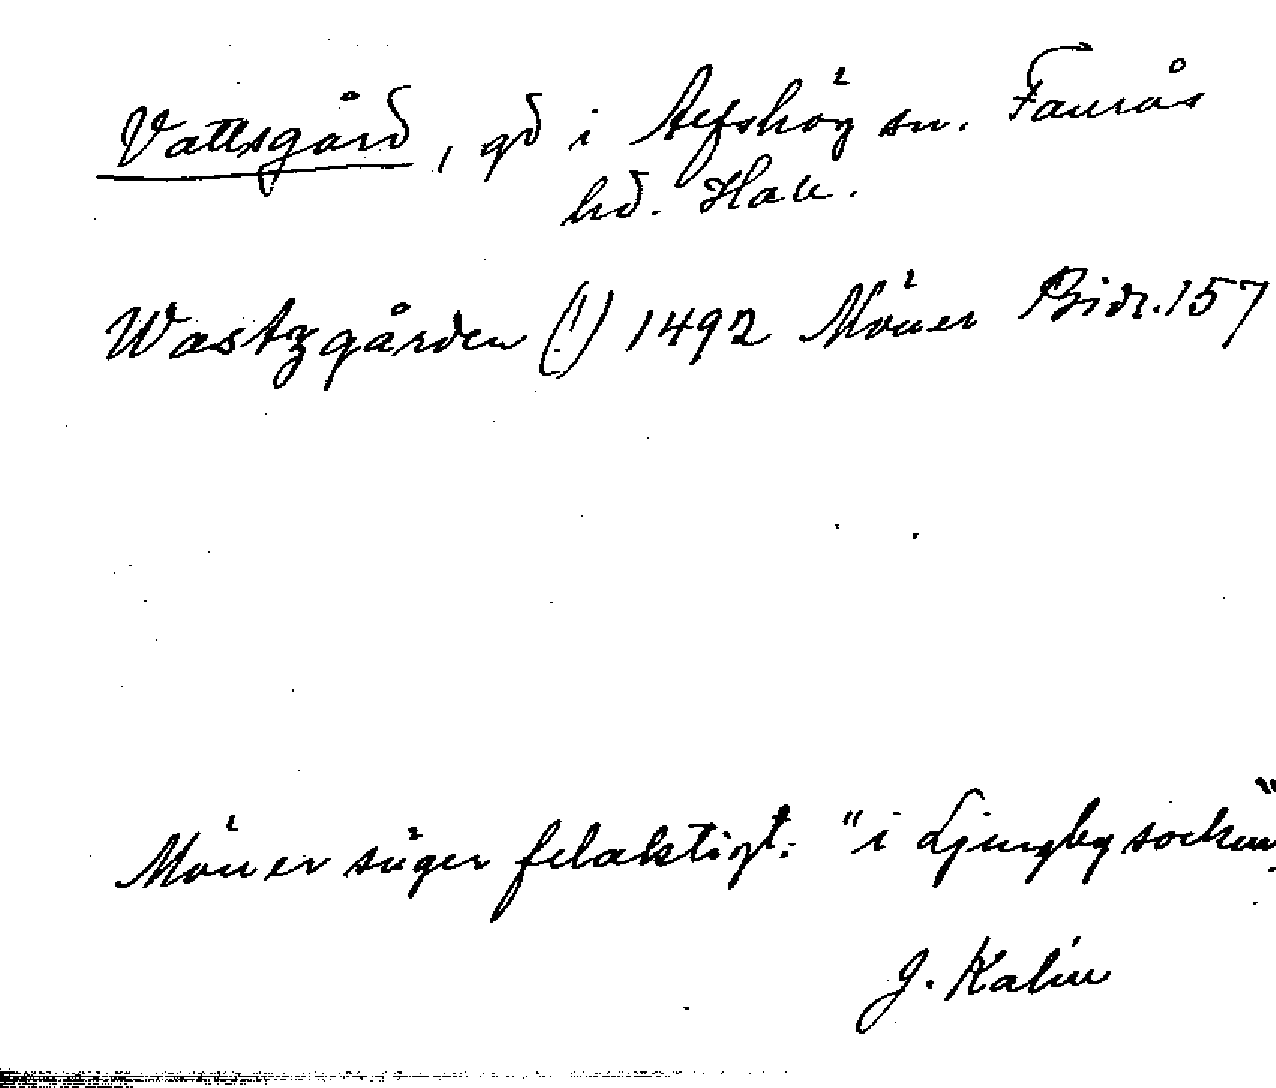 Vattsgård, gd i Alfshög sn. Faurås
hd. Hall.
Wastzgården (!) 1492 Möller Bidr. 157
Möller säger felaktigt: "i Ljungby socken".
J. Kalén